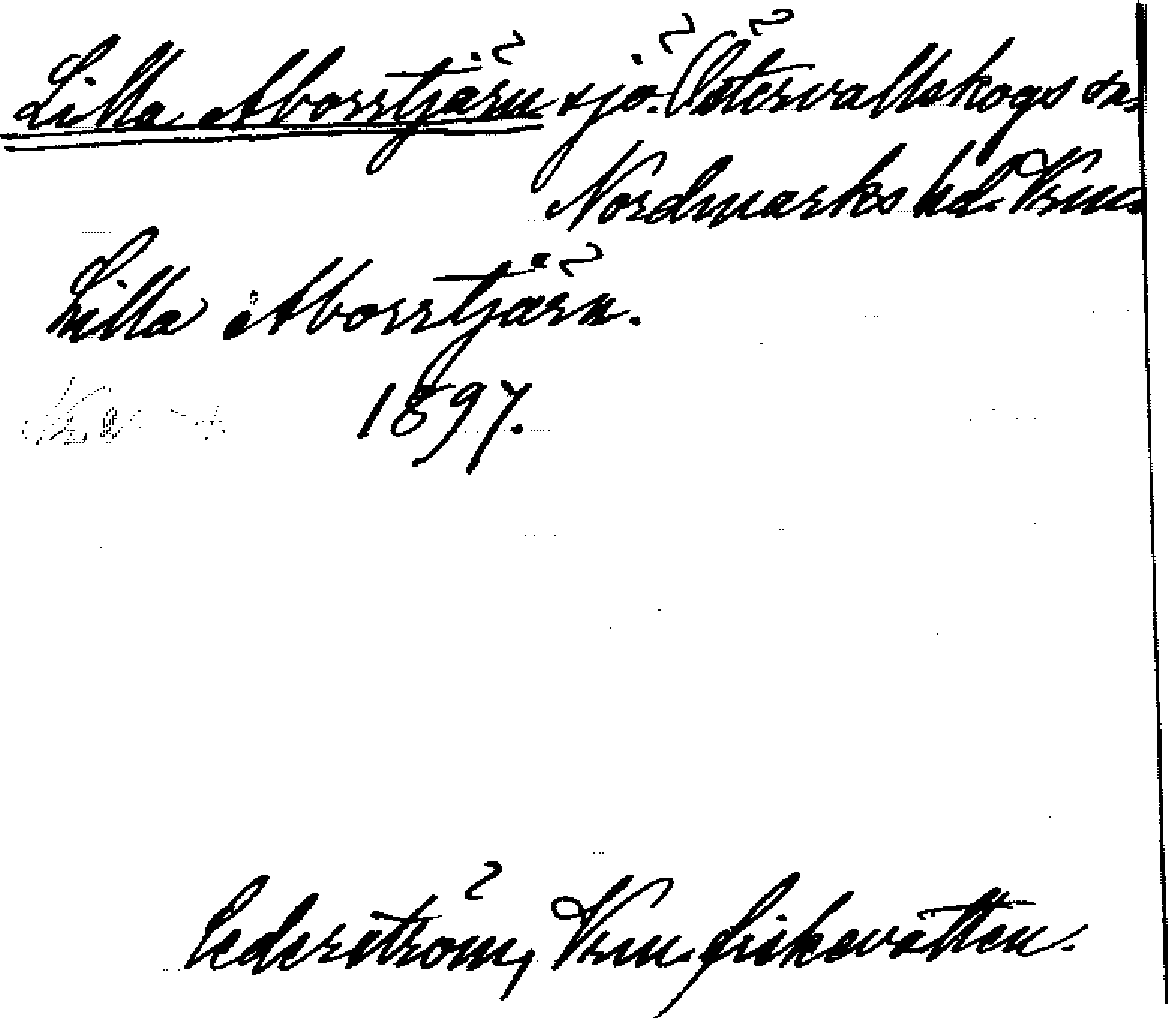 Lilla Aborrtjärn sjö. Östervallskogs sn.
Nordmarks hd. Vrm.
Lilla Aborrtjärn.
1897.
Cederström, Vrm. fiskevatten.